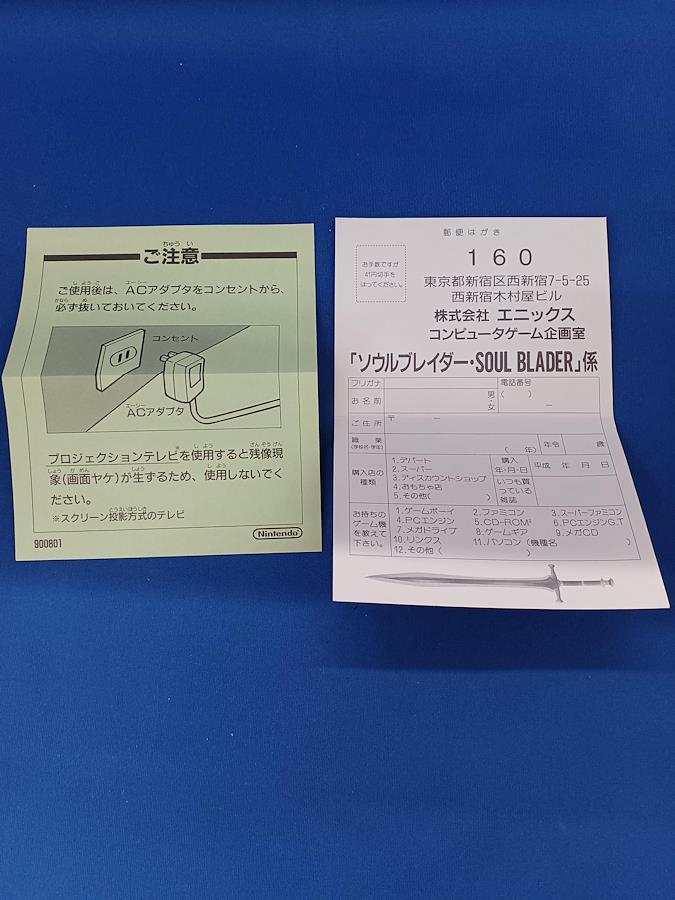 ちゅう い
ご注意
し よう ご エーシー
ご使用後は、ACアダプタをコンセントから、
かなら ぬ
必ず抜いておいてください。
コンセント
エーシー
ACアダプタ
※ し よう ざん ぞう げん
プロジェクションテレビを使用すると残像現
しょう が めん しょう し よう
象(画面ヤケ)が生ずるため、使用しないでく
ださい。
とう えい ほう しき
※スクリーン投影方式のテレビ
Nintendo
900801
郵便はがき
お手数ですが
41円切手を
はってください。
160
東京都新宿区西新宿7-5-25
西新宿木村屋ビル
株式会社 エニックス
コンピュータゲーム企画室
「ソウルブレイダー・SOUL BLADER」係
フリガナ
お名前
男・女
電話番号
( ) ー
ご住所
〒 ー
職業
(学校名・学年)
( 年)
年令 歳
購入店の種類
1.デパート
2.スーパー
3.ディスカウントショップ
4.おもちゃ店
5.その他( )
購入年・月・日
平成 年 月 日
いつも買っている雑誌
お持ちのゲーム機を教えて下さい。
1.ゲームボーイ 2.ファミコン 3.スーパーファミコン
4.PCエンジン 5.CD-ROM² 6.PCエンジンG.T
7.メガドライブ 8.ゲームギア 9.メガCD
10.リンクス 11.パソコン(機種名 )
12.その他( )